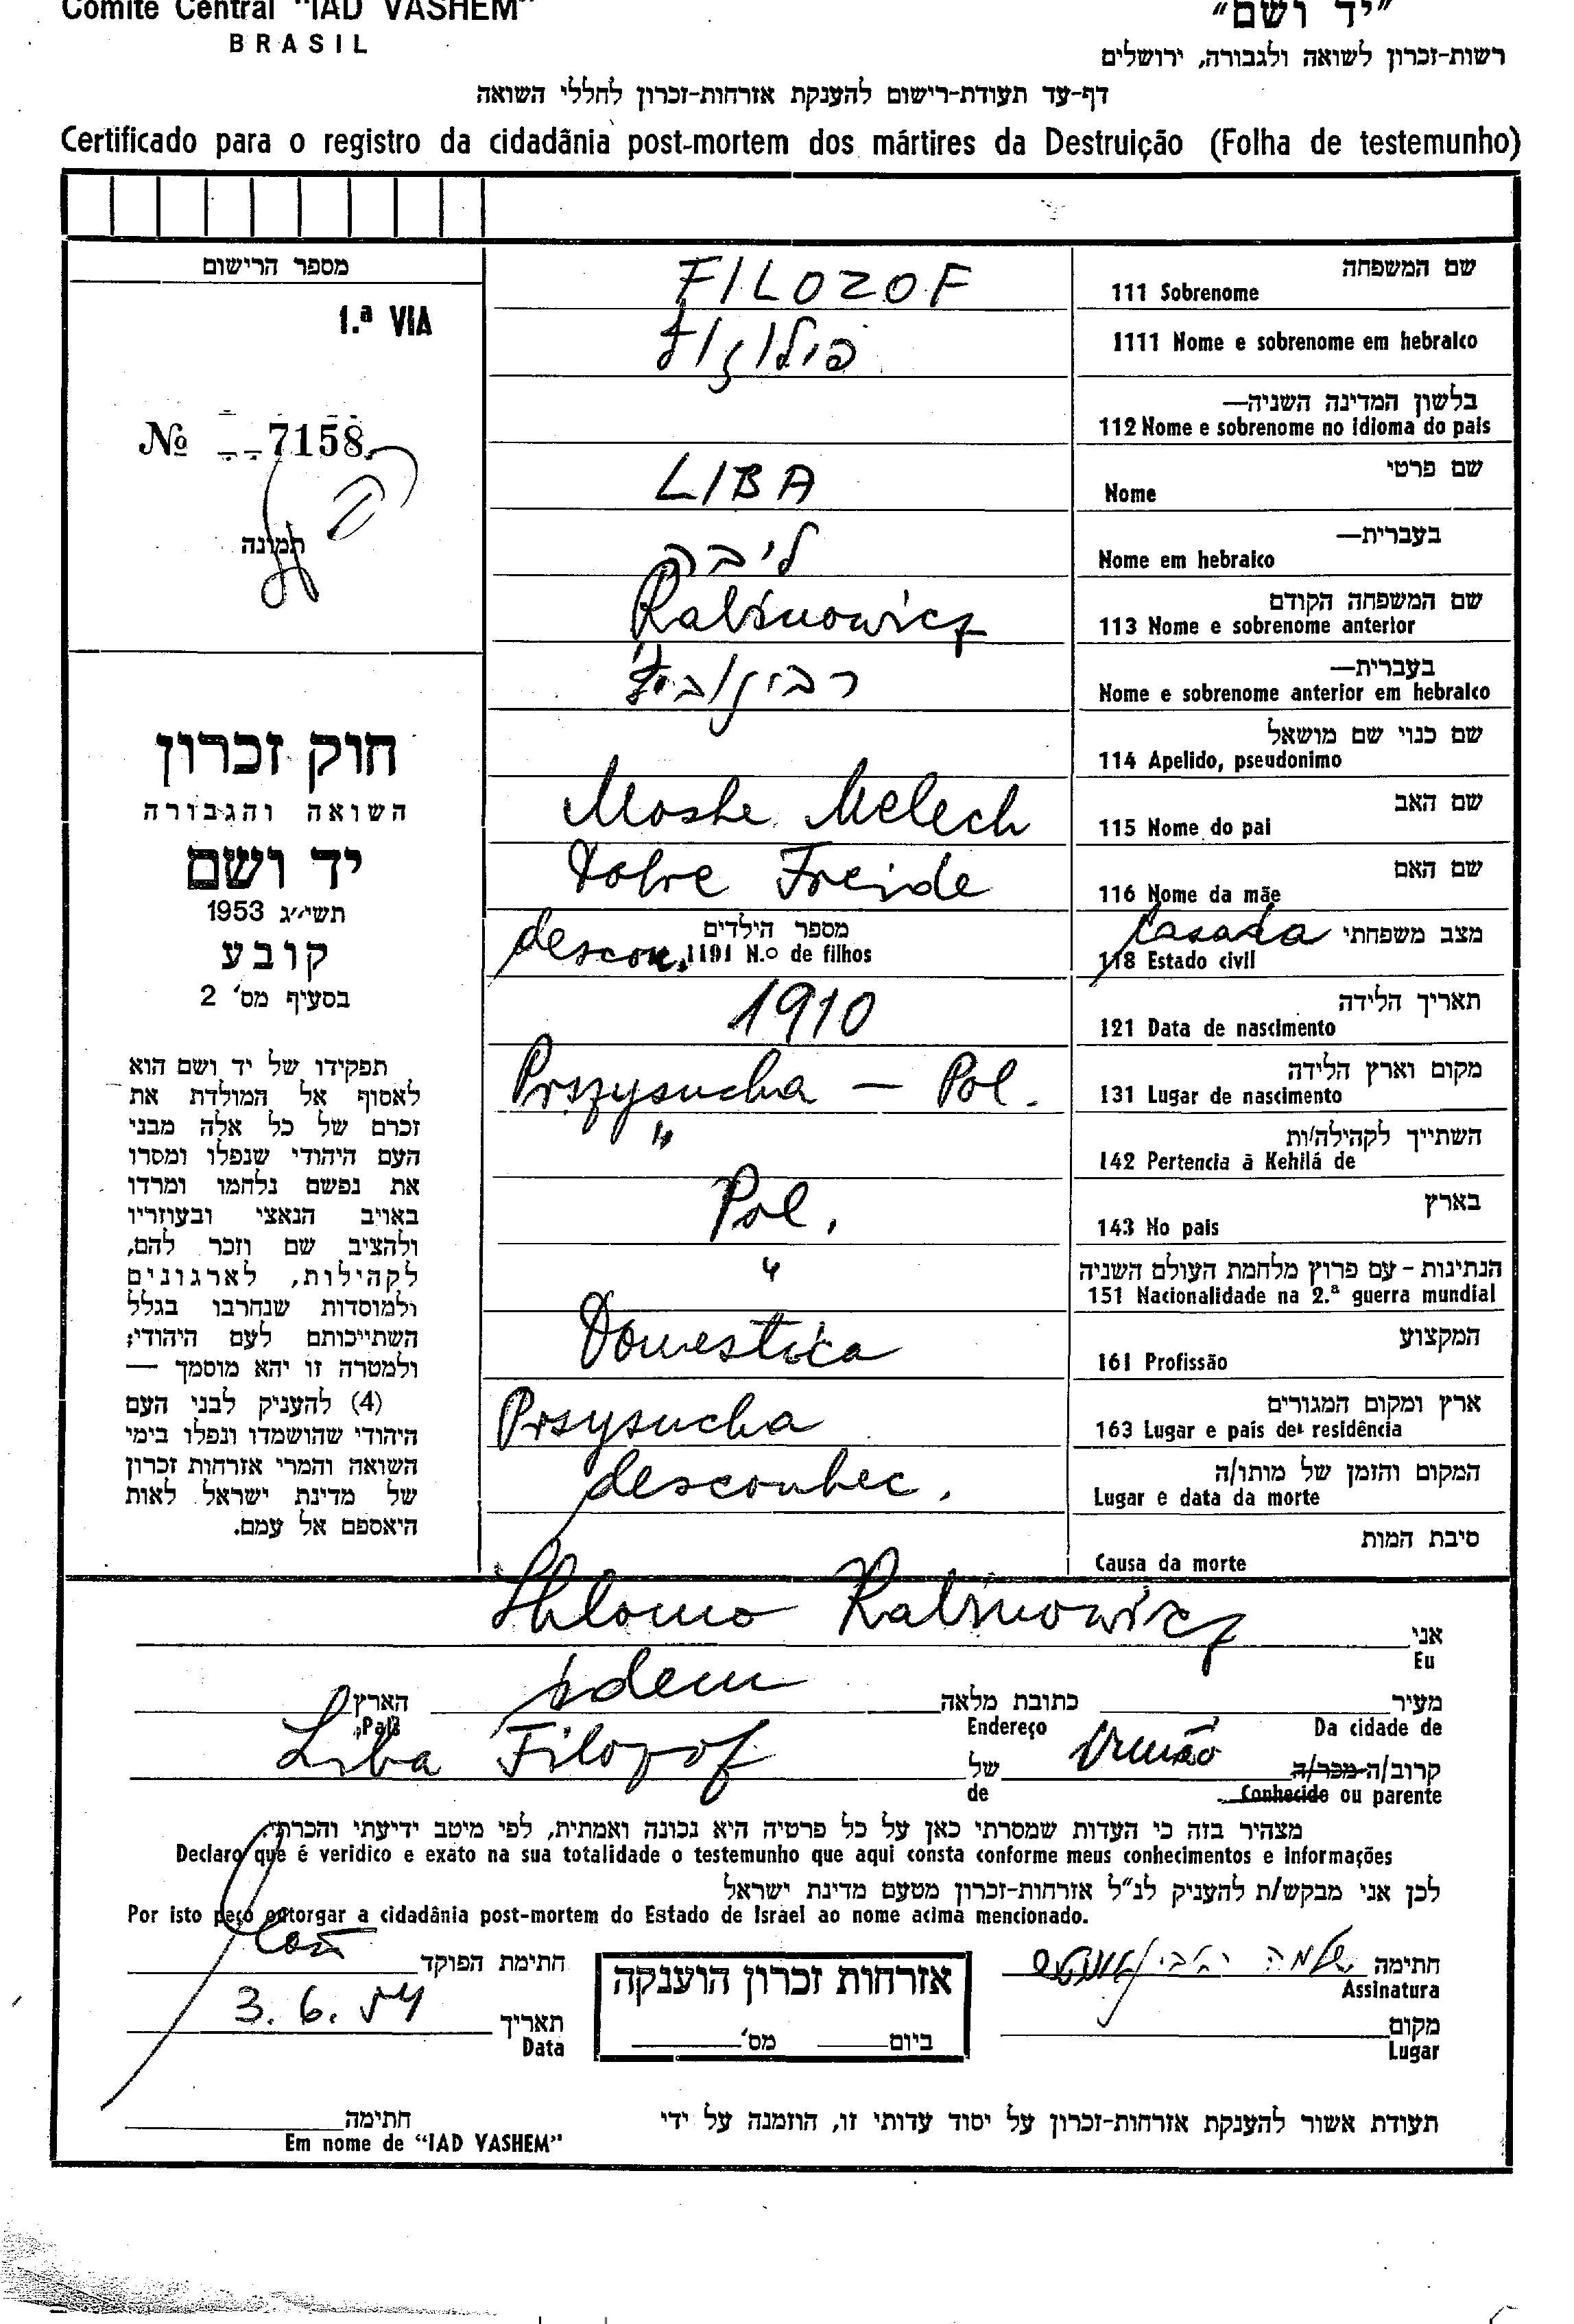 Comité Central "IAD VASHEM"
BRASIL
"יד ושם"
רשות-זכרון לשואה ולגבורה, ירושלים
דף-עד תעודת-רישום להענקת אזרחות-זכרון לחללי השואה
Certificado para o registro da cidadãnia post-mortem dos mártires da Destruição (Folha de testemunho)
מספר הרישום
1.ª VIA
№ 7158
תמונה
חוק זכרון
השואה והגבורה
יד ושם
תשי״ג 1953
קובע
בסעיף מס' 2
תפקידו של יד ושם הוא
לאסוף אל המולדת את
זכרם של כל אלה מבני
העם היהודי שנפלו ומסרו
את נפשם נלחמו ומרדו
באויב הנאצי ובעוזריו
ולהציב שם וזכר להם,
לקהילות, לארגונים
ולמוסדות שנחרבו בגלל
השתייכותם לעם היהודי;
ולמטרה זו יהא מוסמך —
(4) להעניק לבני העם
היהודי שהושמדו ונפלו בימי
השואה והמרי אזרחות זכרון
של מדינת ישראל לאות
היאספם אל עמם.
שם המשפחה
111 Sobrenome FILOZOF
1111 Nome e sobrenome em hebraico פילוזוף
בלשון המדינה השניה—
112 Nome e sobrenome no idioma do pais
שם פרטי
Nome LIBA
בעברית—
Nome em hebraico ליבה
שם המשפחה הקודם
113 Nome e sobrenome anterior Rabinowicz
בעברית—
Nome e sobrenome anterior em hebraico רבינוביץ'
שם כנוי שם מושאל
114 Apelido, pseudonimo
שם האב
115 Nome do pai Moshe Melech
שם האם
116 Nome da mãe Dobre Freide
מצב משפחתי
118 Estado civil Casada
מספר הילדים
1191 N.º de filhos descon.
תאריך הלידה
121 Data de nascimento 1910
מקום וארץ הלידה
131 Lugar de nascimento Prszysucha — Pol.
השתייך לקהילה/ות
142 Pertencia à Kehilá de "
בארץ
143 No pais Pol.
הנתינות - עם פרוץ מלחמת העולם השניה
151 Nacionalidade na 2.ª guerra mundial "
המקצוע
161 Profissão Domestica
ארץ ומקום המגורים
163 Lugar e país de residência Prsysucha
המקום והזמן של מותו/ה
Lugar e data da morte desconhec.
סיבת המות
Causa da morte
אני
Eu Shlomo Rabinowicz
מעיר כתובת מלאה הארץ
Da cidade de Endereço idem País
קרוב/ה-מכר/ה של
Conhecido ou parente Irmão de Liba Filozof
מצהיר בזה כי העדות שמסרתי כאן על כל פרטיה היא נכונה ואמתית, לפי מיטב ידיעתי והכרתי.
Declaro que é veridico e exato na sua totalidade o testemunho que aqui consta conforme meus conhecimentos e informações
לכן אני מבקש/ת להעניק לנ״ל אזרחות-זכרון מטעם מדינת ישראל
Por isto peço outorgar a cidadânia post-mortem do Estado de Israel ao nome acima mencionado.
חתימה שלמה
Assinatura
חתימת הפוקד
אזרחות זכרון הוענקה
ביום מס'
מקום
Lugar
תאריך
Data 3. 6. 54
תעודת אשור להענקת אזרחות-זכרון על יסוד עדותי זו, הוזמנה על ידי
חתימה
Em nome de "IAD VASHEM"